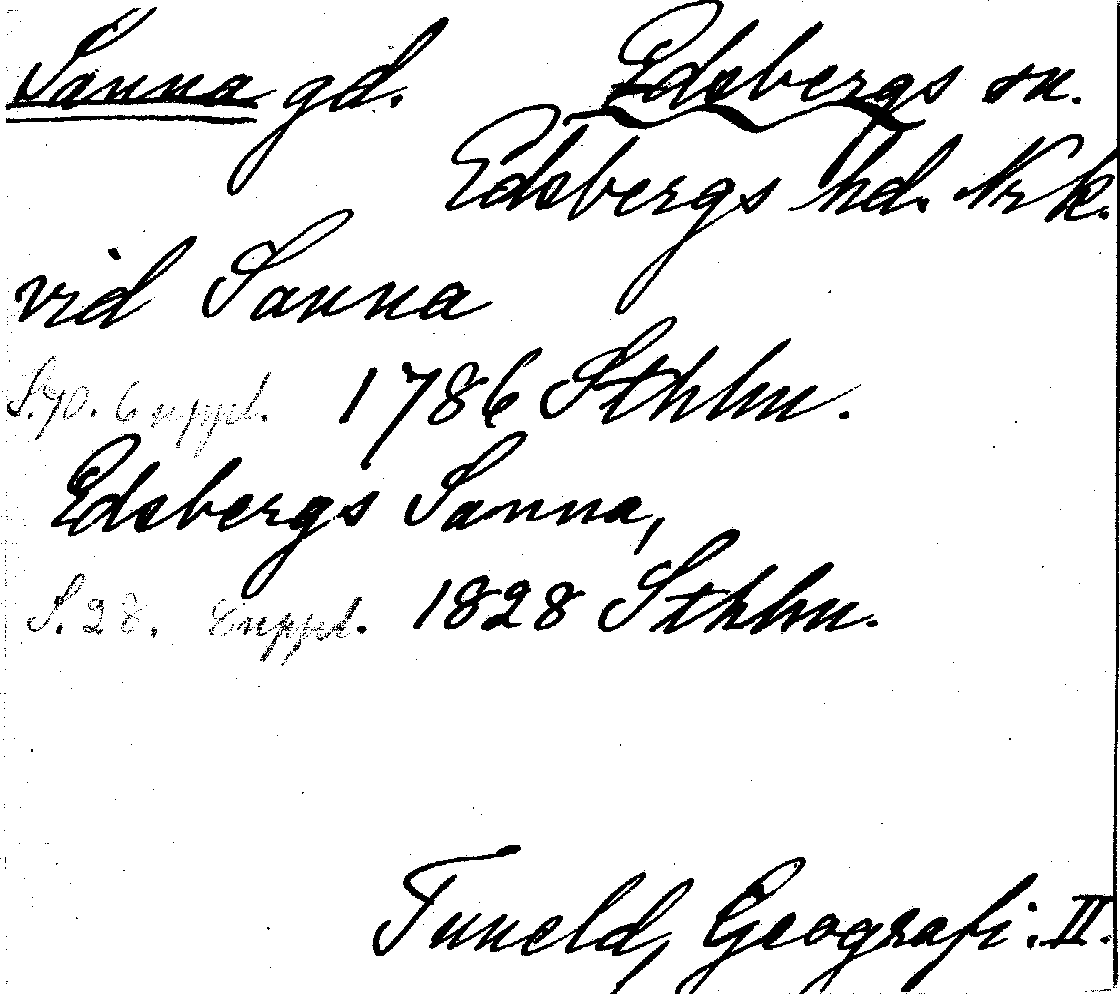 Sanna gd. Edsbergs sn.
Edsbergs hd. Nrk.
vid Sanna
S.70. 6 uppl. 1786 Sthlm.
Edsbergs Sanna,
S.28. 8 uppl. 1828 Sthlm.
Tuneld, Geografi. II.